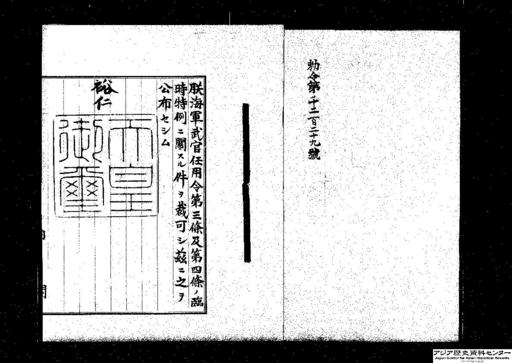 勅令第千二百二十九號
朕海軍武官任用令第三條及第四條ノ臨
時特例ニ關スル件ヲ裁可シ茲ニ之ヲ
公布セシム
裕仁
天皇
御璽
アジア歴史資料センター
Japan Center for Asian Historical Records